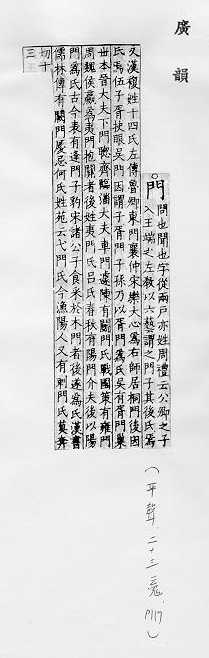 廣韻
門
問也聞也字從兩戶亦姓周禮云公卿之子
入王端之左教以六藝謂之門子其後氏焉
又漢複姓十四氏左傳魯卿東門襄仲宋樂大心爲右師居桐門後因
氏焉伍子胥抉眼吳門因謂子胥門子孫乃以胥門爲氏吳有胥門巢
世本晉大夫下門聰齊臨淄大夫車門遽陳有門氏戰國策有雍門
周魏侯嬴爲夷門抱關者後姓夷門氏呂氏春秋有陽門介夫後以陽
門爲氏古今表有逢門子豹宋諸公子食采於木門者後遂爲氏漢書
儒林傳有門忌何氏姓苑云弋門氏今漁陽人又有荆門氏莫奔
切十
三
(平聲.二十三魂.P117)